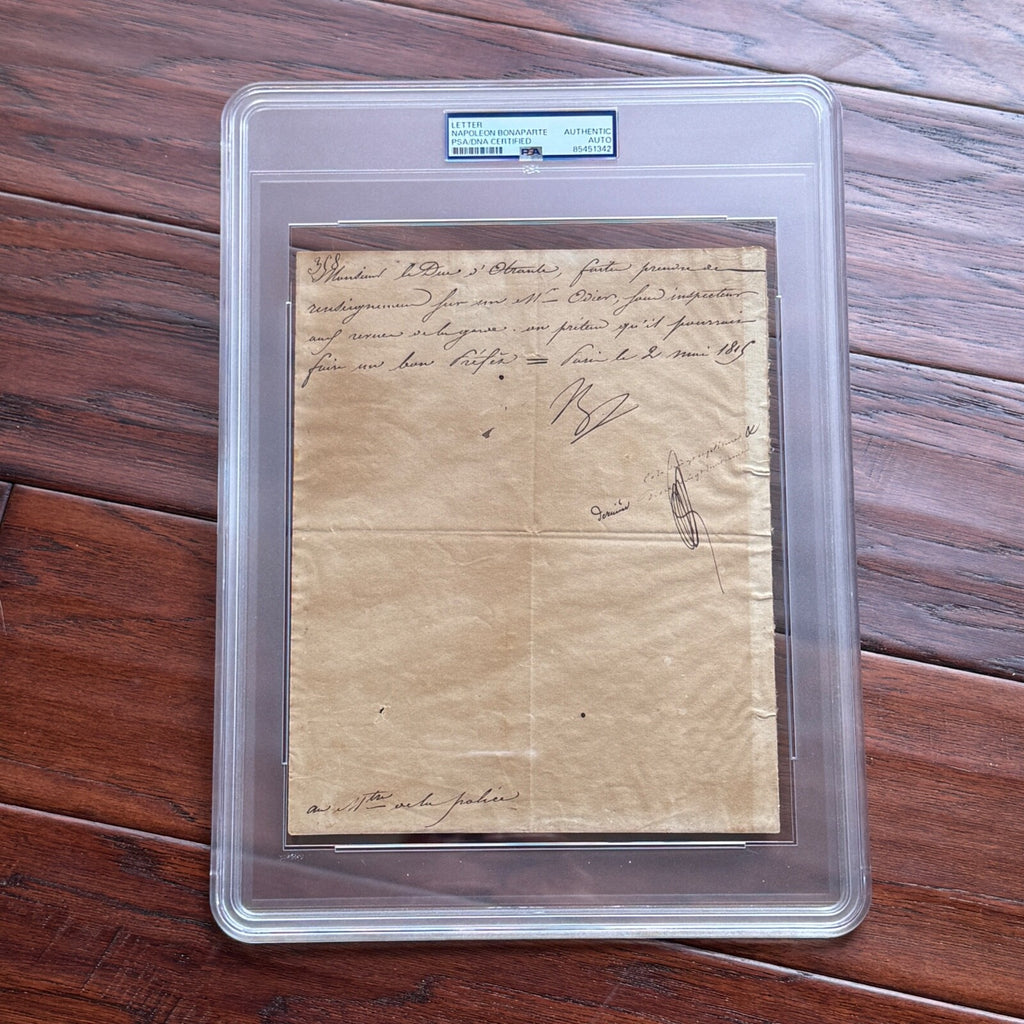 LETTER
NAPOLEON BONAPARTE AUTHENTIC
PSA/DNA CERTIFIED AUTO
PSA 85451342
358
Monsieur le Duc d'Otrante, faite prendre des
renseignemens sur un Mr Odier, sous inspecteur
aux revues de la garde. on prétend qu'il pourrait
faire un bon Préfet = Paris le 2 mai 1815
au Mtre de la police